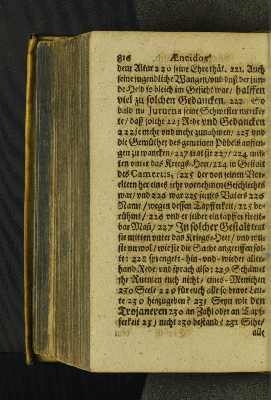 816 Æneidos
dem Altar 220 seine Ehre thät. 221. Auch
seine jugendliche Wangen/ und daß der jun-
ge Held so bleich im Gesicht war/ halffen
viel zu solchen Gedancken. 222. So
bald nu Juturna seine Schwester merck-
te/ daß solche 223 Rede und Gedancken
222 je mehr und mehr zunahmen/ 223 und
die Gemüther des gemeinen Pöbels anfien-
gen zu wancken/ 227 trat sie 227/ 224 mit-
ten unter das Kriegs-Heer/ 224 in Gestalt
des Camertis, 225 der von seinen Vor-
eltern her eines sehr vornehmen Geschlechts
war/ und 226 war 225 seines Vaters 226
Name/ wegen dessen Tapfferkeit/ 225 be-
rühmt/ 226 und er selber ein tapfer streit-
bar Mañ/ 227 In solcher Gestalt trat
sie mitten unter das Kriegs-Heer/ und wu-
ste nu wol/ wie sie die Sache angreiffen sol-
te: 228 sprengete-hin-und-wieder aller-
hand Rede/ und sprach also: 229 Schämet
ihr Rutuler euch nicht/ eines-Menschen
230 Seele 229 für euch alle so brave Leu-
te 230 hinzugeben? 231 Seyn wir den
Trojanern 230 an Zahl oder an Tapf-
ferkeit 231 nicht 230 bestand? 231 Sihe/
alle